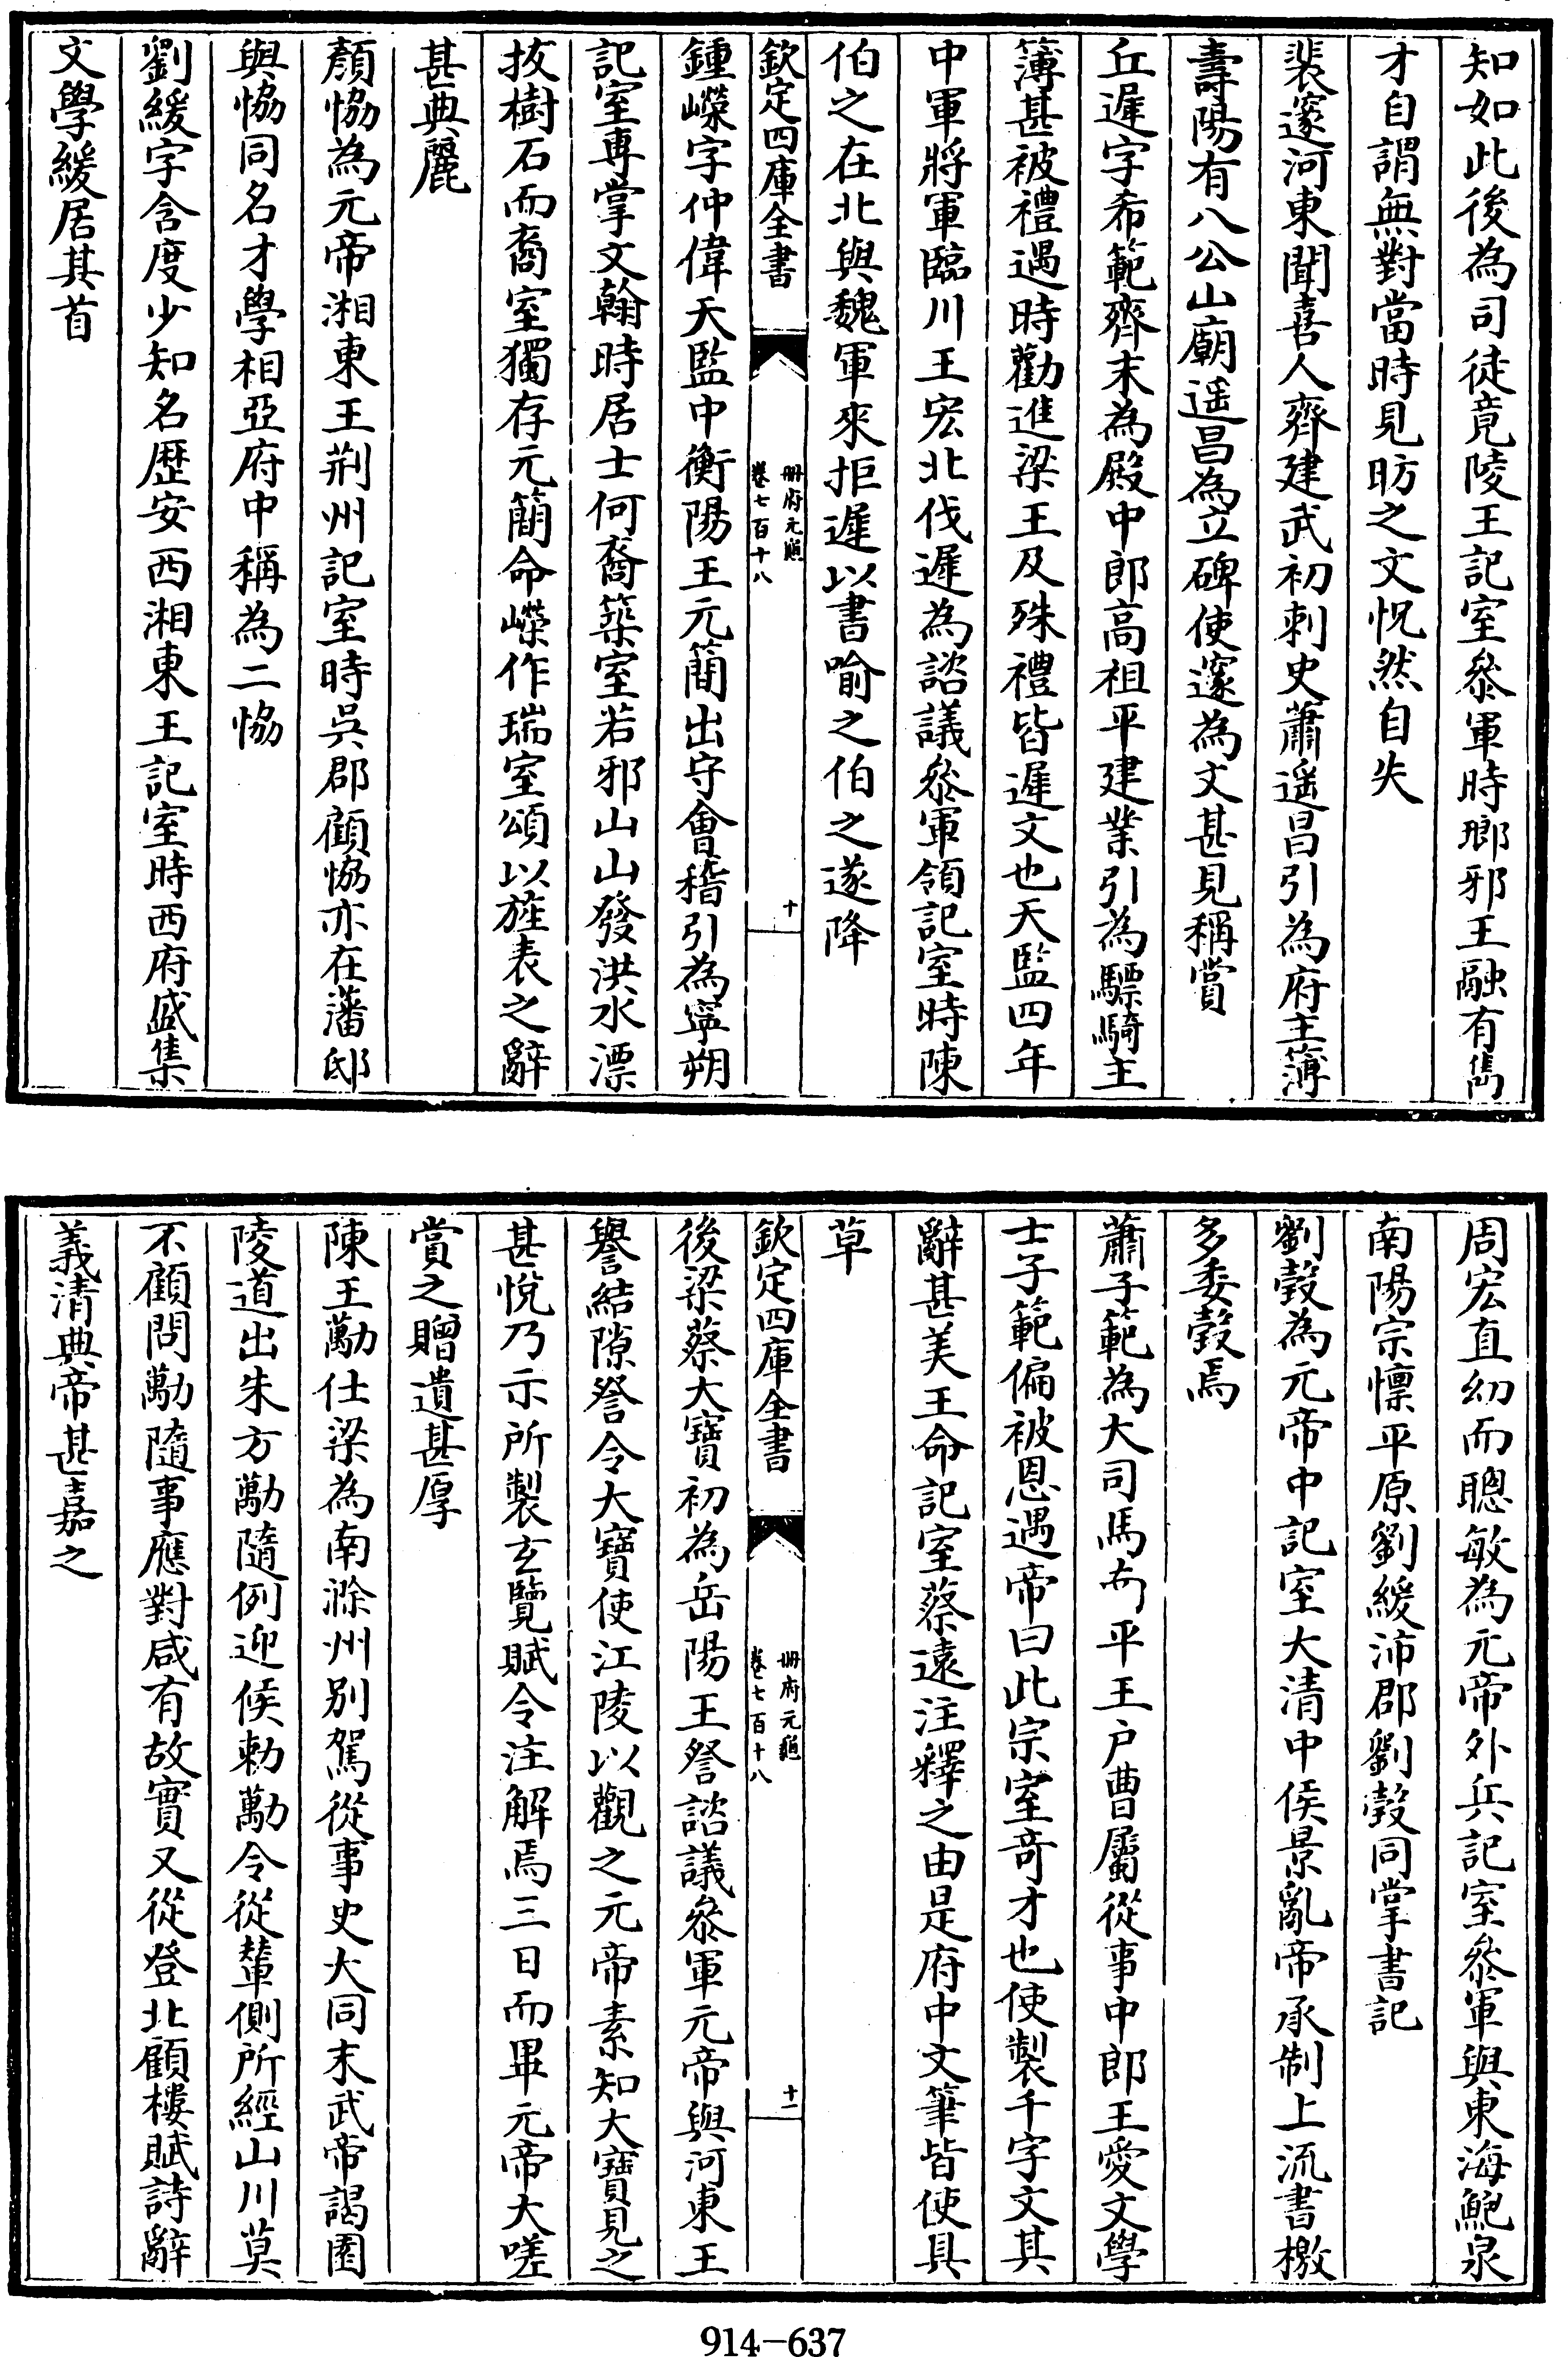 知如此後為司徒竟陵王記室叅軍時瑯邪王融有雋
才自謂無對當時見昉之文怳然自失
裴邃河東聞喜人齊建武初刺史蕭遥昌引為府主簿
壽陽有八公山廟遥昌為立碑使邃為文甚見稱賞
丘遲字希範齊末為殿中郎高祖平建業引為驃騎主
簿甚被禮遇時勸進梁王及殊禮皆遲文也天監四年
中軍將軍臨川王宏北伐遲為諮議叅軍領記室時陳
伯之在北與魏軍來拒遲以書喻之伯之遂降
欽定四庫全書
冊府元龜
卷七百十八
十
鍾嶸字仲偉天監中衡陽王元簡出守會稽引為寧朔
記室專掌文翰時居士何裔築室若邪山山發洪水漂
拔樹石而裔室獨存元簡命嶸作瑞室頌以旌表之辭
甚典麗
顏恊為元帝湘東王荆州記室時吳郡顧恊亦在藩邸
與恊同名才學相亞府中稱為二恊
劉緩字含度少知名歷安西湘東王記室時西府盛集
文學緩居其首
周宏直幼而聰敏為元帝外兵記室叅軍與東海鮑泉
南陽宗懍平原劉緩沛郡劉瑴同掌書記
劉瑴為元帝中記室大清中侯景亂帝承制上流書檄
多委瑴焉
蕭子範為大司馬南平王户曹屬從事中郎王愛文學
士子範偏被恩遇帝曰此宗室奇才也使製千字文其
辭甚美王命記室蔡遠注釋之由是府中文筆皆使具
草
欽定四庫全書
冊府元龜
卷七百十八
十一
後梁蔡大寶初為岳陽王詧諮議叅軍元帝與河東王
譽結隙詧令大寶使江陵以觀之元帝素知大寶見之
甚悅乃示所製玄覽賦令注解焉三日而畢元帝大嗟
賞之贈遺甚厚
陳王勱仕梁為南滁州别駕從事史大同末武帝謁園
陵道出朱方勱隨例迎候勅勱令從輦側所經山川莫
不顧問勱隨事應對咸有故實又從登北顧樓賦詩辭
義清典帝甚嘉之
914-637